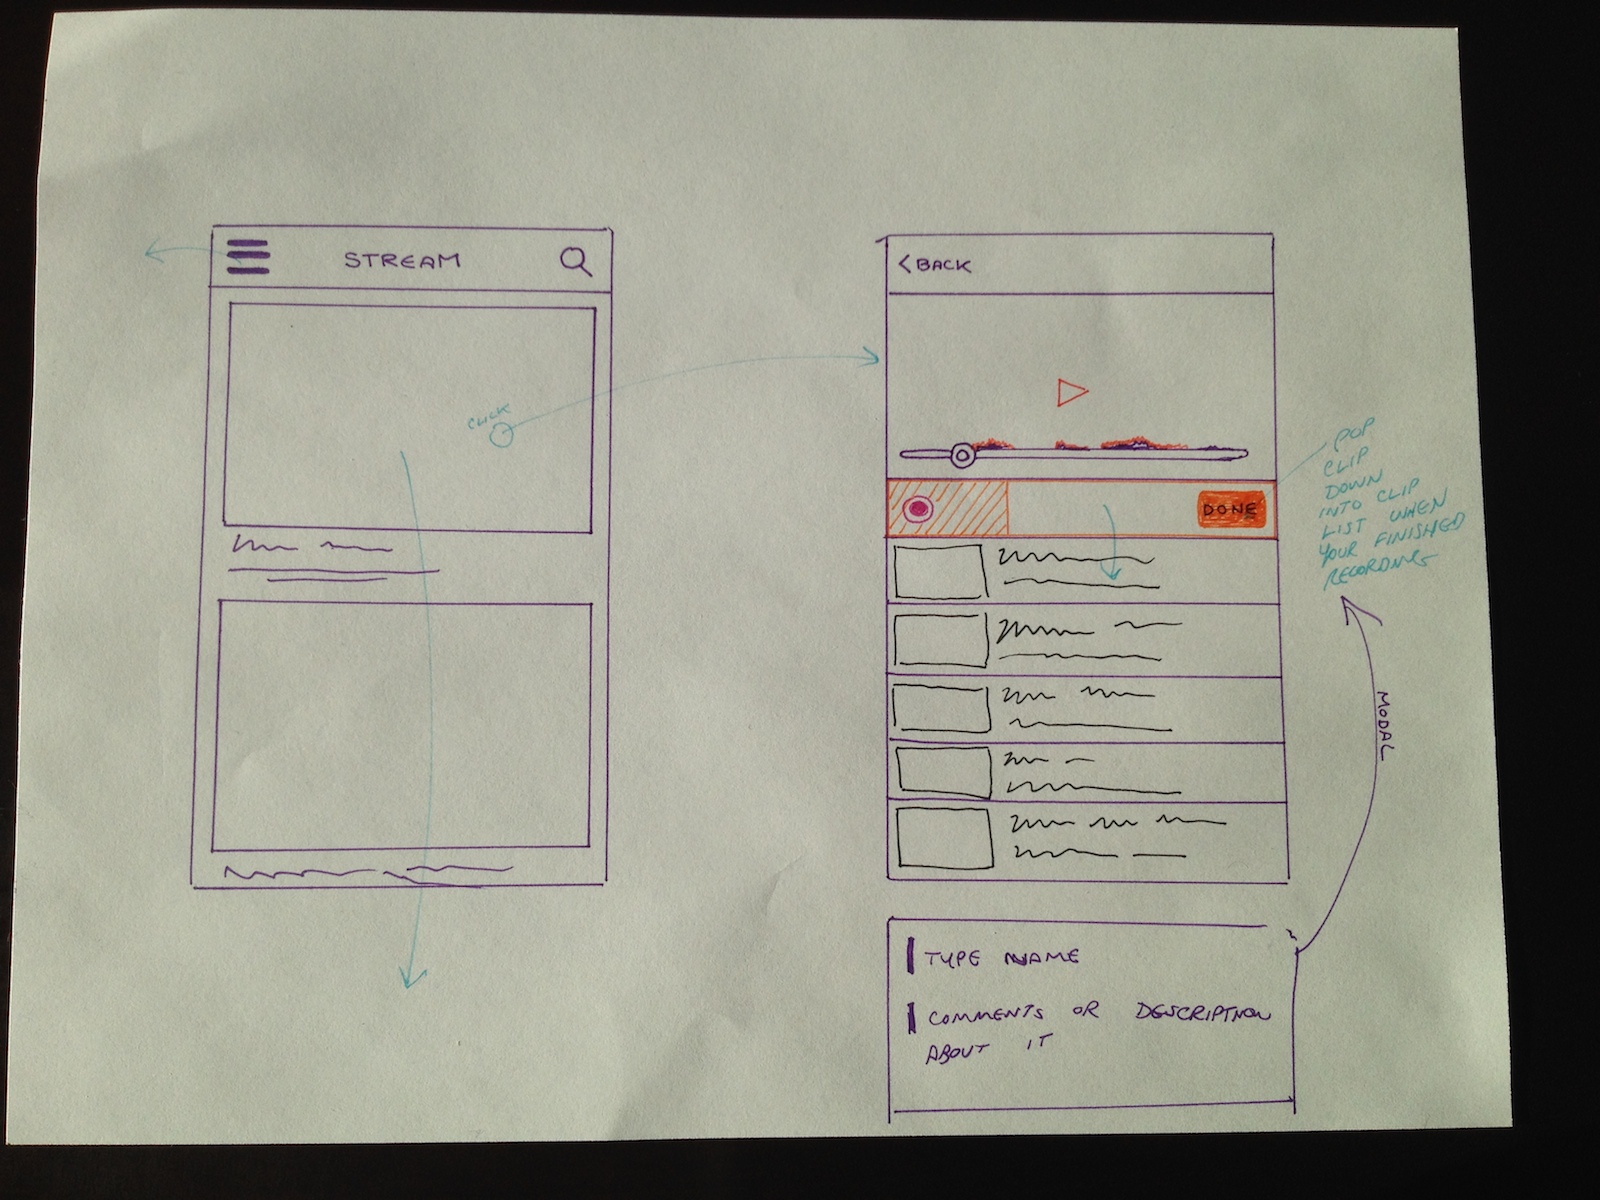 STREAM
CLICK
<BACK
DONE
POP
CLIP
DOWN
INTO CLIP
LIST WHEN
YOUR FINISHED
RECORDING
MODAL
TYPE NAME
COMMENTS OR DESCRIPTION
ABOUT IT